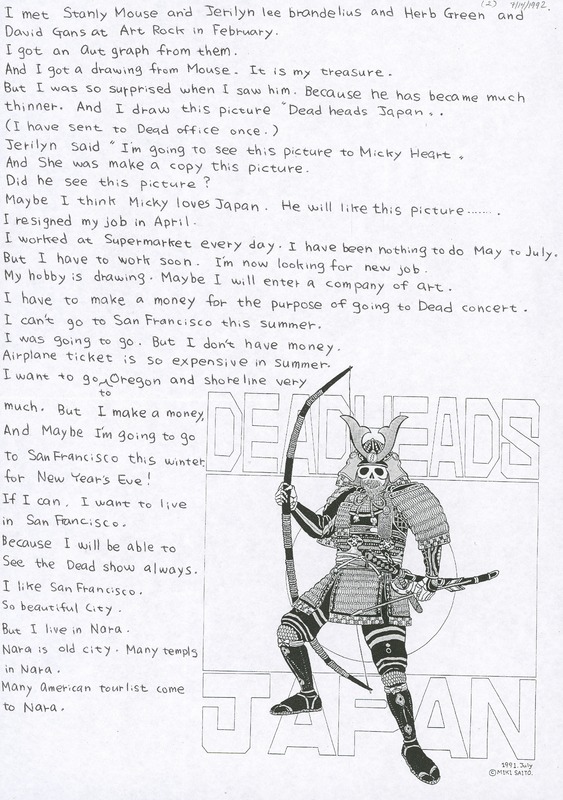 (2) 7/14/1992.
I met Stanly Mouse and Jerilyn lee brandelius and Herb Green and
David Gans at Art Rock in February.
I got an aut graph from them.
And I got a drawing from Mouse. It is my treasure.
But I was so surprised when I saw him. Because he has became much
thinner. And I draw this picture "Dead heads Japan".
(I have sent to Dead office once.)
Jerilyn said "I'm going to see this picture to Micky Heart"
And She was make a copy this picture.
Did he see this picture?
Maybe I think Micky loves Japan. He will like this picture.......
I resigned my job in April.
I worked at Supermarket every day. I have been nothing to do May to July.
But I have to work soon. I'm now looking for new job.
My hobby is drawing. Maybe I will enter a company of art.
I have to make a money for the purpose of going to Dead concert.
I can't go to San Francisco this summer.
I was going to go. But I don't have money.
Airplane ticket is so expensive in summer.
I want to go to Oregon and shoreline very
much. But I make a money,
And Maybe I'm going to go
to San Francisco this winter
for New Year's Eve!
If I can, I want to live
in San Francisco.
Because I will be able to
See the Dead show always.
I like San Francisco.
So beautiful City.
But I live in Nara.
Nara is old city. Many templs
in Nara.
Many american tourlist come
to Nara.
DEADHEADS
JAPAN
1991. July
©MIKI SAITO.